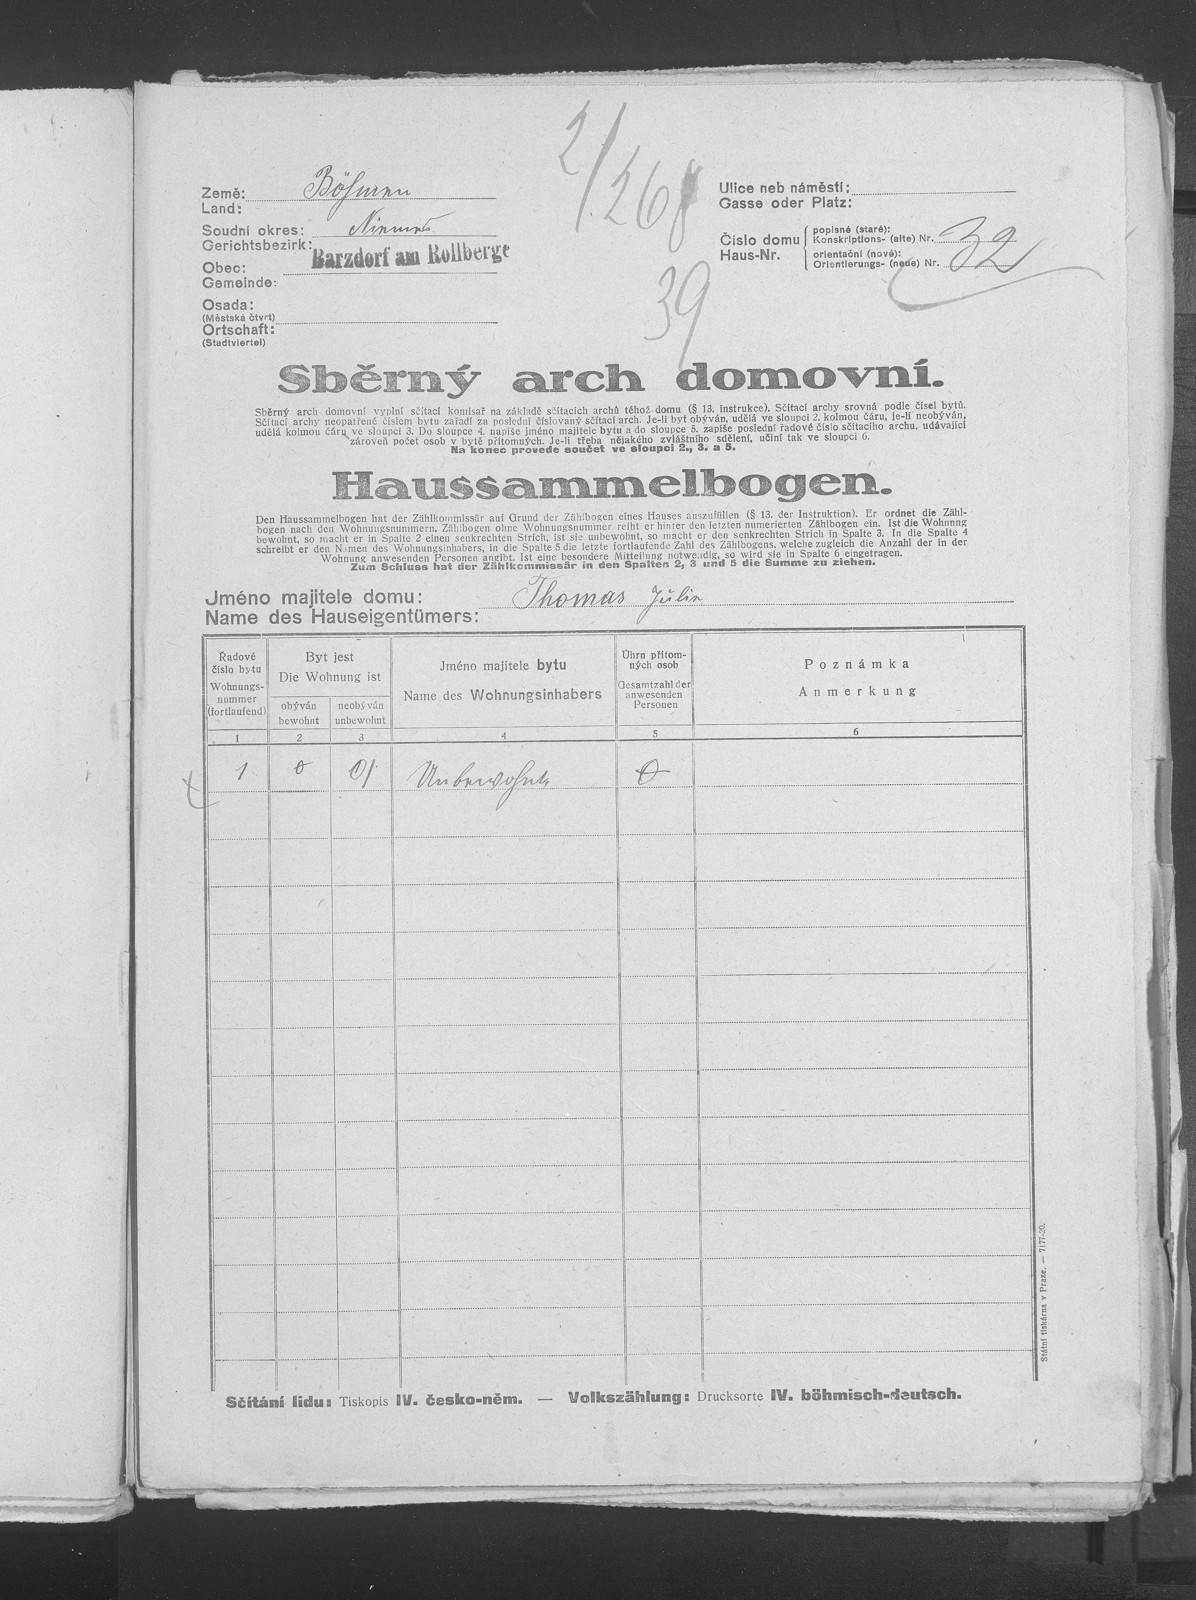 2/268
39
Země: Böhmen
Land:
Soudní okres: Niemes
Gerichtsbezirk:
Barzdorf am Rollberge
Obec:
Gemeinde:
Osada:
(Městská čtvrt)
Ortschaft:
(Stadtviertel)
Ulice neb náměstí:
Gasse oder Platz:
Číslo domu
Haus-Nr.
popisné (staré):
Konskriptions- (alte) Nr. 32
orientační (nové):
Orientierungs- (neue) Nr.
Sběrný arch domovní.
Sběrný arch domovní vyplní sčítací komisař na základě sčítacích archů téhož domu (§ 13. instrukce). Sčítací archy srovná podle čísel bytů.
Sčítací archy neopatřené číslem bytu zařadí za poslední číslovaný sčítací arch. Je-li byt obýván, udělá ve sloupci 2. kolmou čáru, je-li neobýván,
udělá kolmou čáru ve sloupci 3. Do sloupce 4. napíše jméno majitele bytu a do sloupce 5. zapíše poslední řadové číslo sčítacího archu, udávající
zároveň počet osob v bytě přítomných. Je-li třeba nějakého zvláštního sdělení, učiní tak ve sloupci 6.
Na konec provede součet ve sloupci 2., 3. a 5.
Haussammelbogen.
Den Haussammelbogen hat der Zählkommissär auf Grund der Zählbogen eines Hauses auszufüllen (§ 13. der Instruktion). Er ordnet die Zähl-
bogen nach den Wohnungsnummern. Zählbogen ohne Wohnungsnummer reiht er hinter den letzten numerierten Zählbogen ein. Ist die Wohnung
bewohnt, so macht er in Spalte 2 einen senkrechten Strich, ist sie unbewohnt, so macht er den senkrechten Strich in Spalte 3. In die Spalte 4
schreibt er den Namen des Wohnungsinhabers, in die Spalte 5 die letzte fortlaufende Zahl des Zählbogens, welche zugleich die Anzahl der in der
Wohnung anwesenden Personen angibt. Ist eine besondere Mitteilung notwendig, so wird sie in Spalte 6 eingetragen.
Zum Schluss hat der Zählkommissär in den Spalten 2, 3 und 5 die Summe zu ziehen.
Jméno majitele domu: Thomas Julie
Name des Hauseigentümers:
Řadové
číslo bytu
Wohnungs-
nummer
(fortlaufend)
Byt jest
Die Wohnung ist
obýván
bewohnt
neobýván
unbewohnt
Jméno majitele bytu
Name des Wohnungsinhabers
Úhrn přítom-
ných osob
Gesamtzahl der
anwesenden
Personen
Poznámka
Anmerkung
1 2 3 4 5 6
1 0 Unbewohnt 0
Sčítání lidu: Tiskopis IV. česko-něm. — Volkszählung: Drucksorte IV. böhmisch-deutsch.
Státní tiskárna v Praze. — 7177-20.